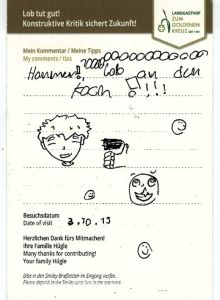 Lob tut gut!
Konstruktive Kritik sichert Zukunft!
LANDGASTHOF
ZUM
GOLDENEN
KREUZ
Mein Kommentar / Meine Tipps
My comments / tips
Lob an den
Koch !!!!
Besuchsdatum
Date of visit 3.10.15
Herzlichen Dank fürs Mitmachen!
Ihre Familie Hügle
Many thanks for contributing!
Your family Hügle
Bitte in den Smiley Briefkasten im Eingang werfen.
Please deposit in the Smiley post box in the entrance.